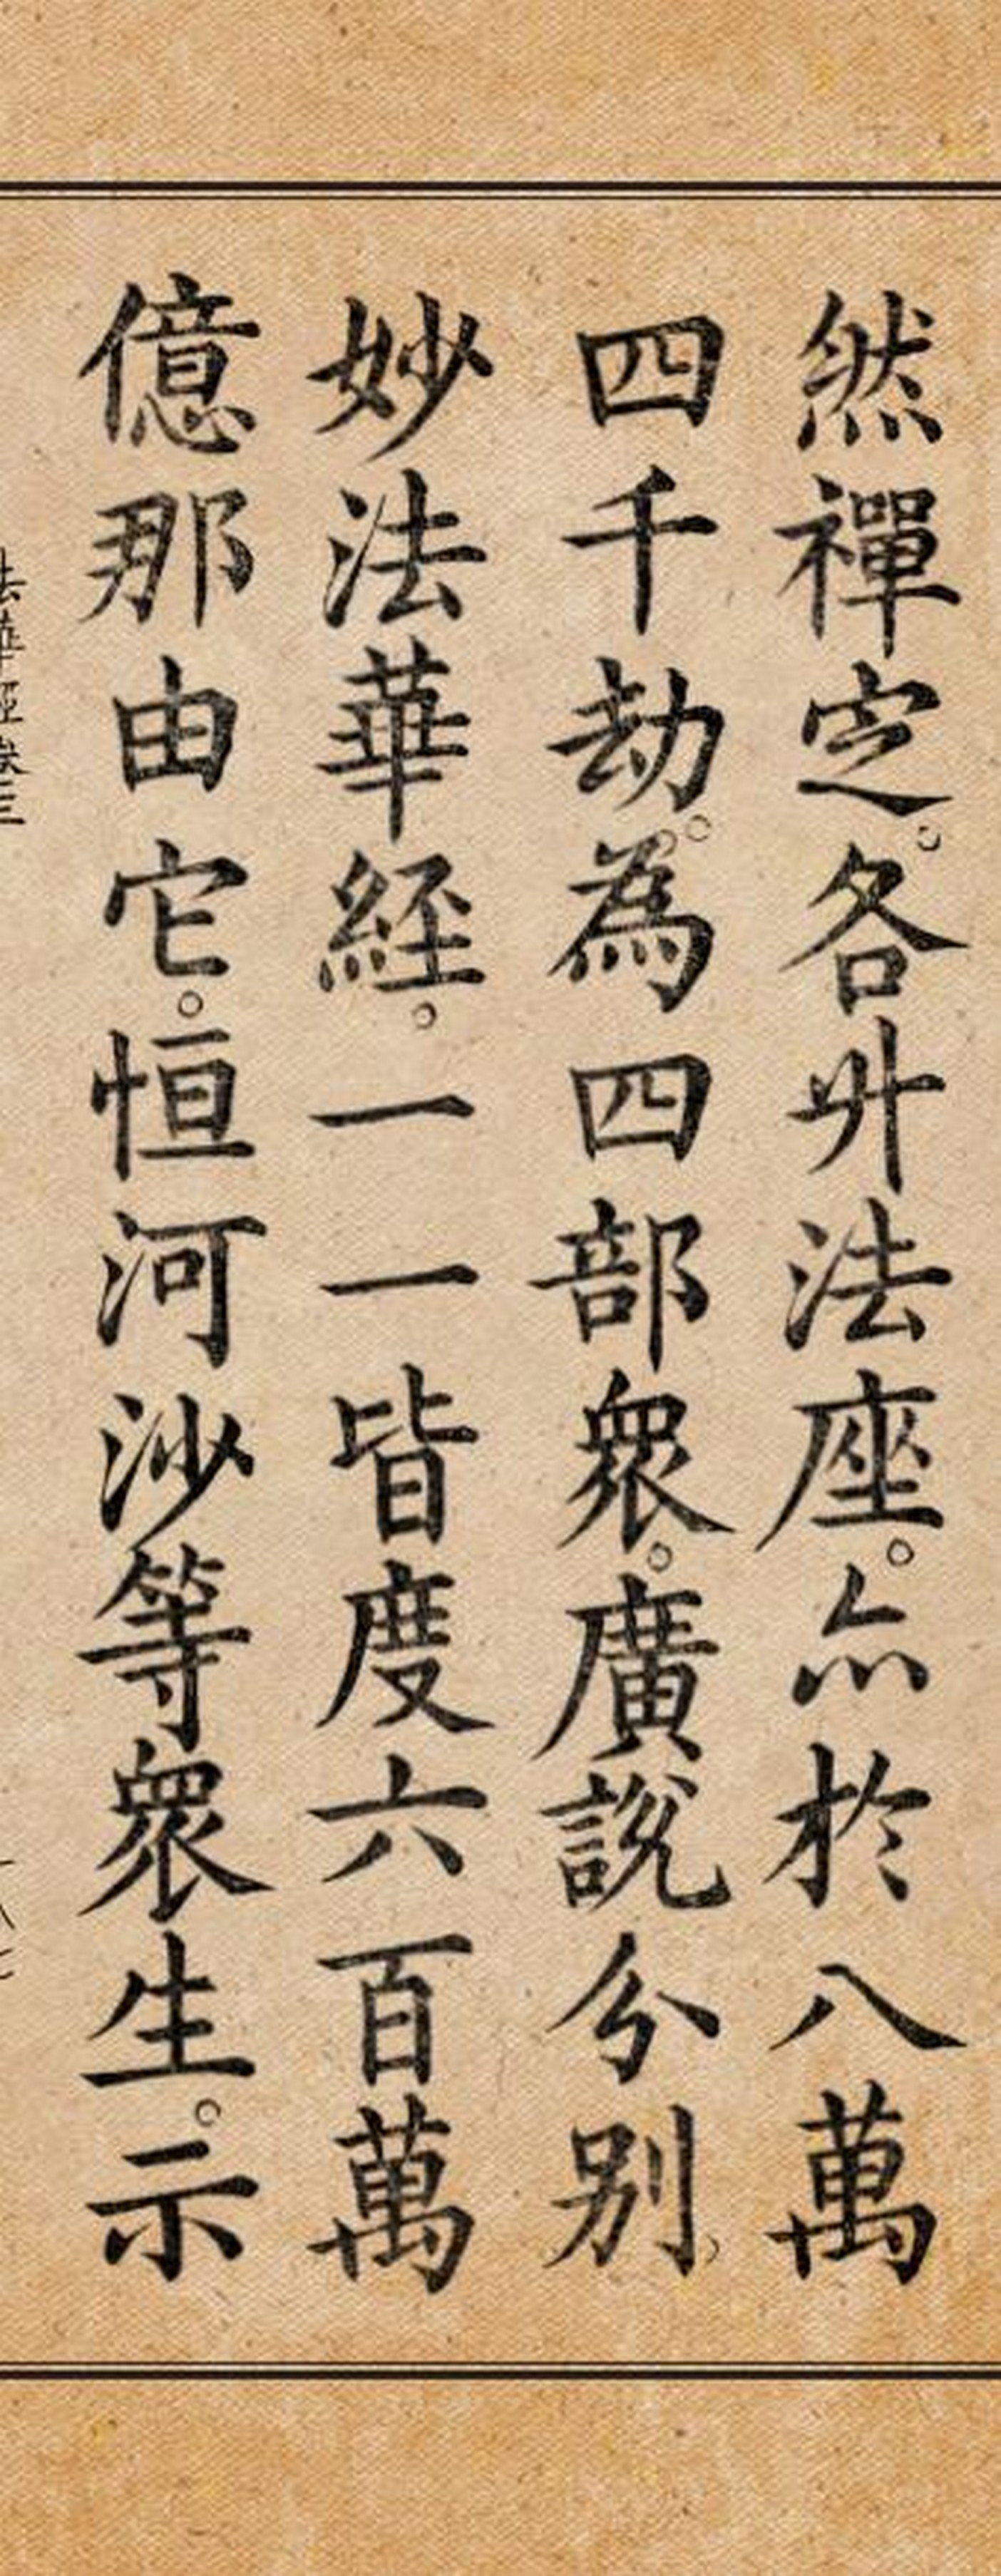 然禪定。各升法座。亦於八萬
四千劫。為四部衆。廣說分別
妙法華經。一一皆度六百萬
億那由它。恒河沙等衆生。示
法華經卷三